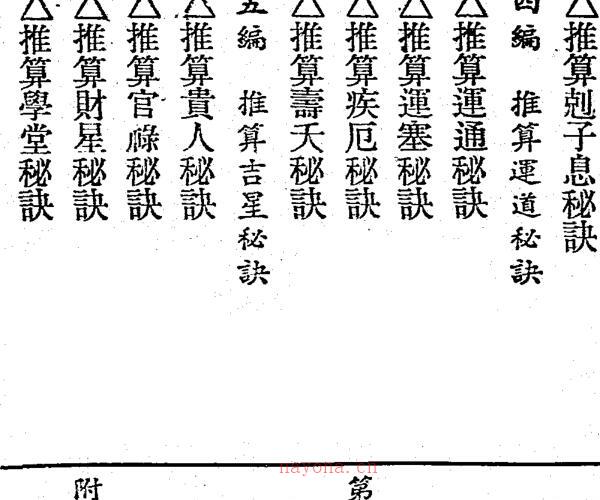 △推算剋子息秘訣
四編 推算運道秘訣
△推算運通秘訣
△推算運塞秘訣
△推算疾厄秘訣
△推算壽夭秘訣
五編 推算吉星秘訣
△推算貴人秘訣
△推算官祿秘訣
△推算財星秘訣
△推算學堂秘訣
第
附
nayona.cn